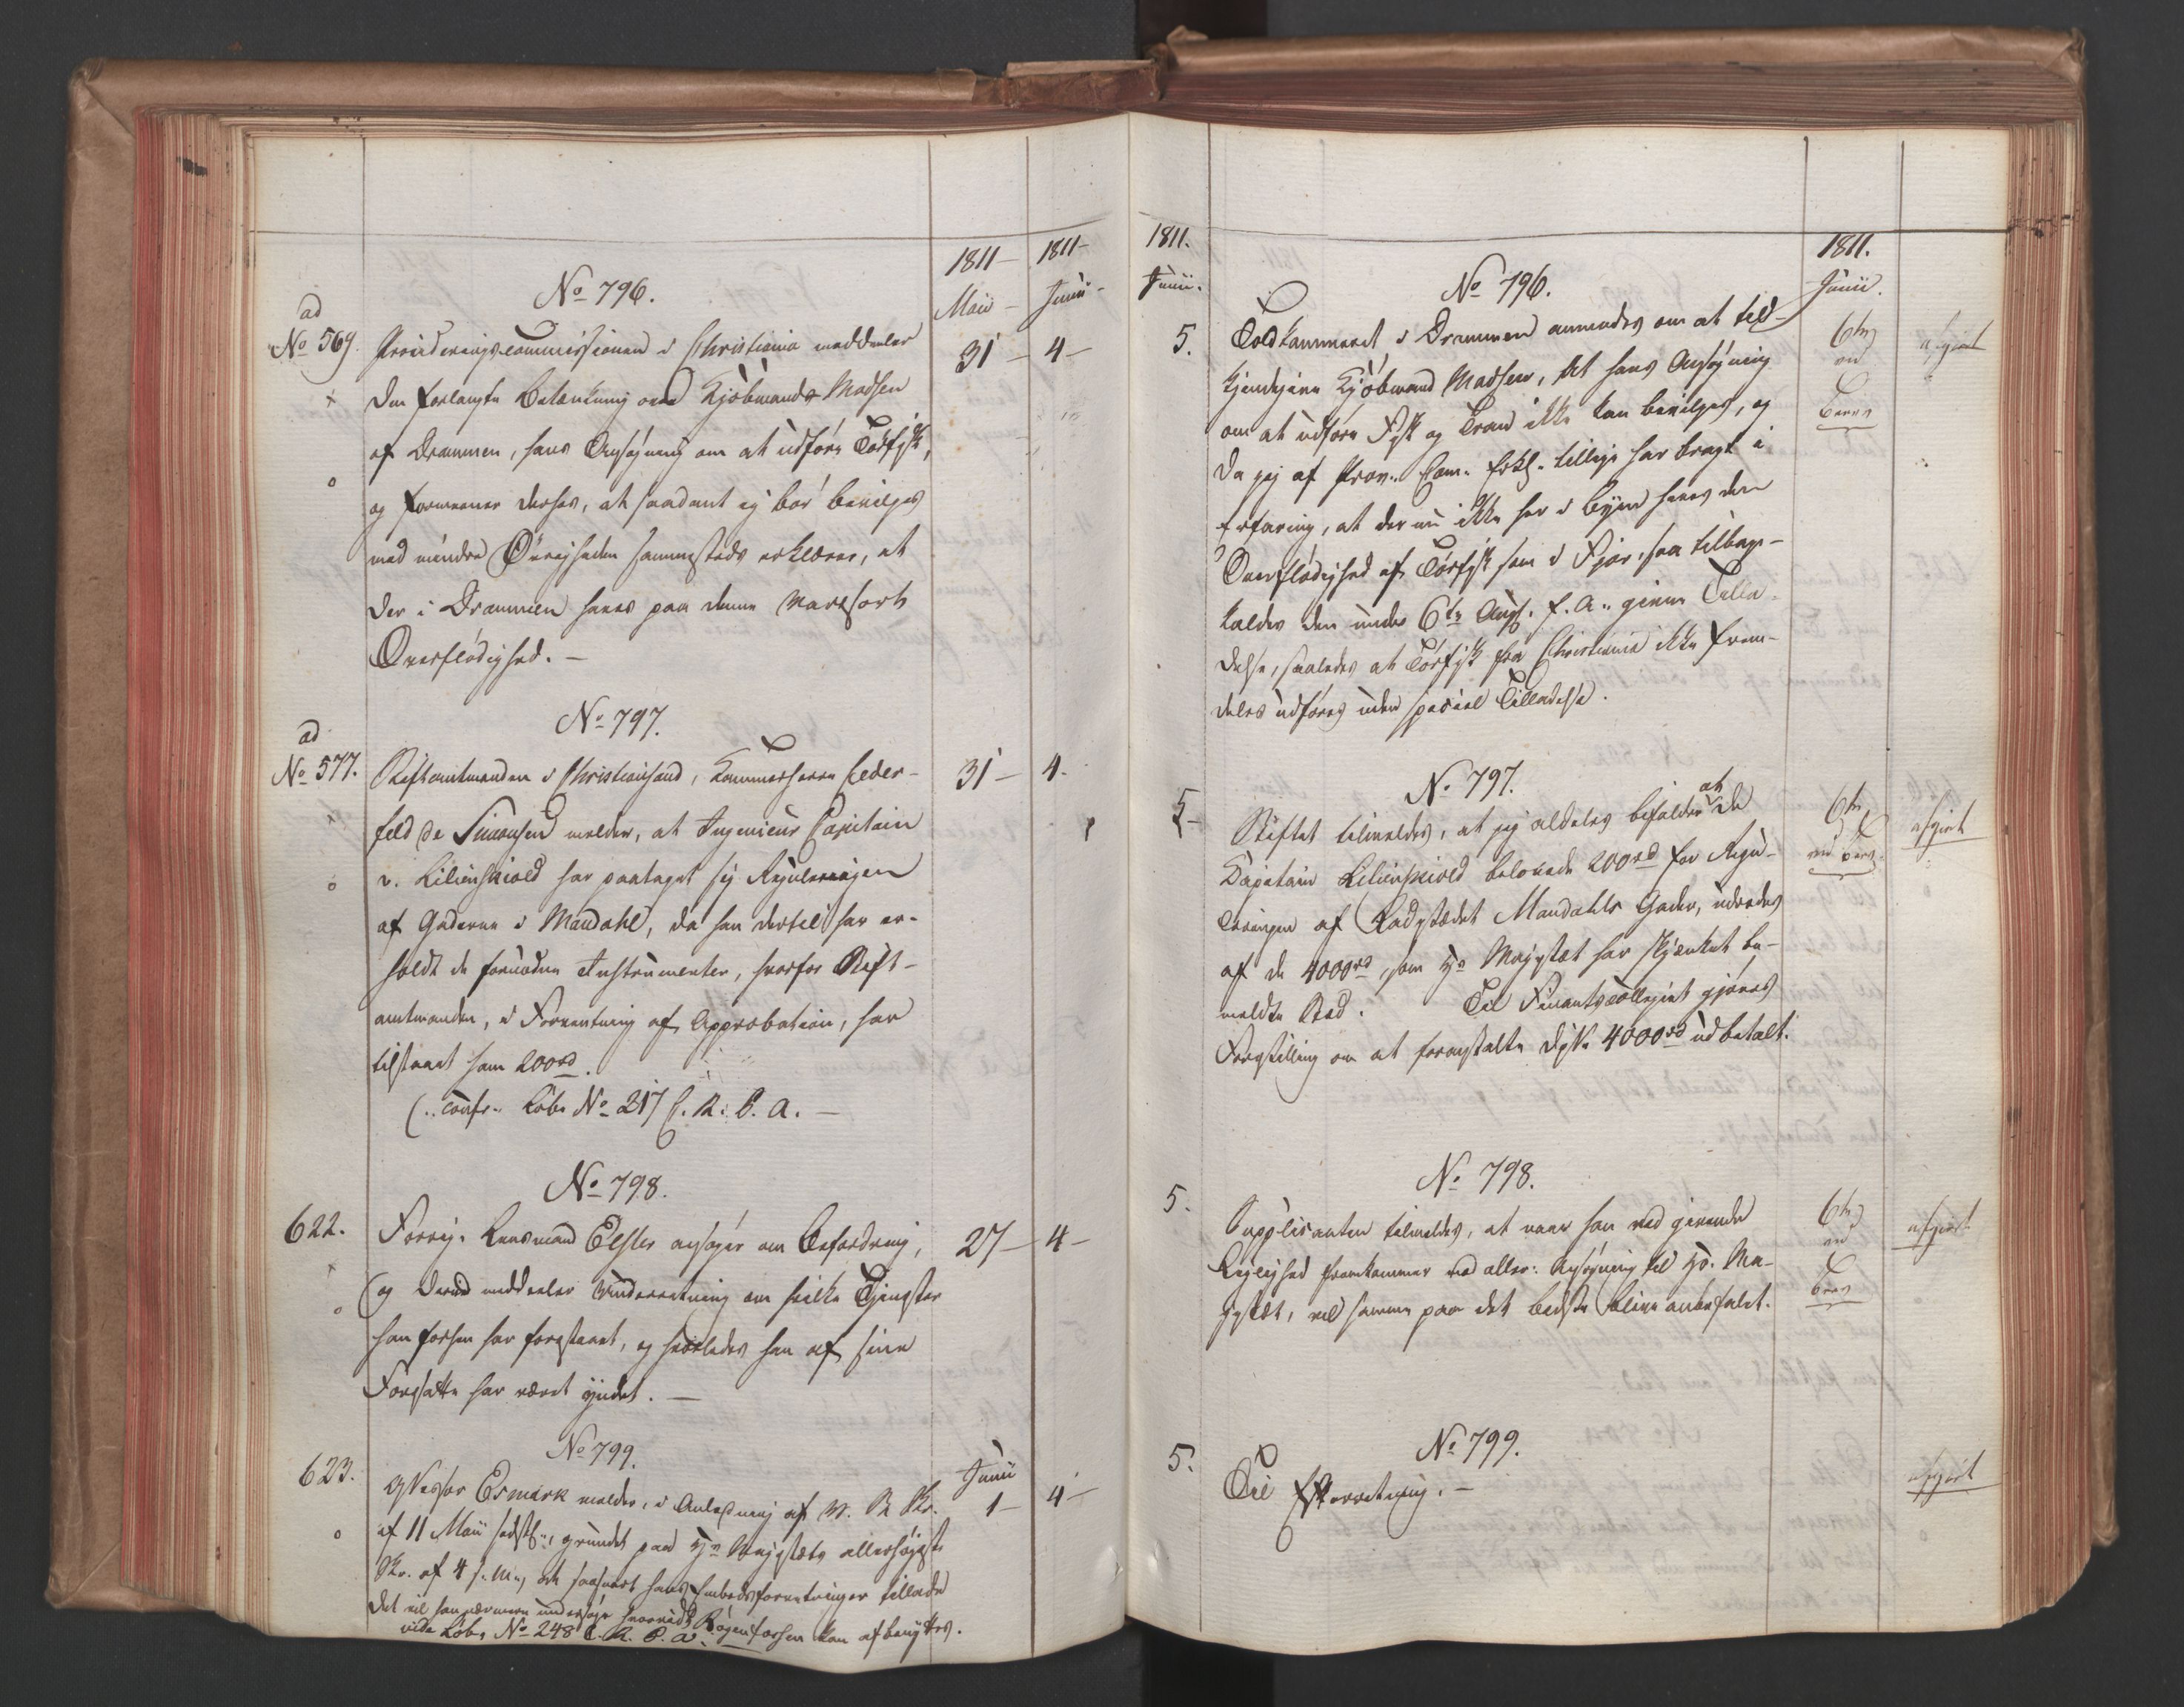 1811 — 1811 —
Maii — Junii —
No 796.
ad
No 569. Provideringscommissionen i Christiania meddeeler 31 — 4 —
den forlangte Betænkning over Kjøbmand Madsen
af Drammen, hans Ansøgning om at udføre Tørfisk,
og formener derhos, at saadant ej bør bevilges
med mindre Øvrigheden sammesteds erklærer, at
der i Drammen haves paa denne Varesort
Overflødighed. —
No 797.
ad
No 577. Stiftamtmanden i Christiansand, Kammerherre Ceder- 31 — 4.
feld de Simonsen melder, at Ingenieur Capitain
v. Lilienskiold har paataget sig Reguleringen
af Gaderne i Mandahl, da han dertil har er-
holdt de fornødne Instrumenter, hvorfor Stift-
amtmanden, i Forventning af Approbation, har
tilstaaet ham 200 rd.
(.. confr. Løbe No 217 C. R. P. A. —
No 798.
622. Forrige Lensmand Elster ansøger om Befordring, 27 — 4 —
og derved meddeeler Underretning om hvilke Tjenester
han forhen har forestaaet, og hvorledes han af sine
Foresatte har været yndet. —
No 799. Junii
623. Assessor Esmark melder, i Anledning af m. P. Skr. 1 — 4 —
af 11 Maii sidstl., grundet paa Hs Majestæts allerhøjeste
Skr. af 4 s. M., at saasnart hans Embedsforretninger tillade
det vil han nærmere undersøge hvorvidt Bøgenfossen kan afbenyttes.
vide Løbe No 248 C. R. P. A. —
1811. 1811.
Junii. Junii.
No 796.
5. Toldkammeret i Drammen anmodes om at til- 6te afgjort
kjendegive Kjøbmand Madsen, at hans Ansøgning
om at udføre Fisk og Tran ikke kan bevilges, og
da jeg af Prov. Com. Erkl. tillige har bragt i
Erfaring, at der nu ikke her i Byen haves den
Overflødighed af Tørfisk som i Fjor, saa tilbage-
kaldes den under 6te Aug. f. A. givne Tilla-
delse, saaledes at Tørfisk fra Christiania ikke frem-
deles udføres uden special Tilladelse.
No 797.
5 — Stiftet tilmeldes, at jeg aldeles bifalder at de 6te afgjort
Capitain Lilienskiold belovede 200 rd for Regu-
leringen af Ladestædet Mandahls Gader, udredes
af de 4000 rd, som Hs Majestæt har skjænket be-
meldte Sted. Til Finantscollegiet gjøres
Forestilling om at foranstalte disse 4000 rd udbetalt.
No 798.
5. Supplicanten tilmeldes, at naar han ved givende 6te afgjort
Leylighed fremkommer med aller: Ansøgning til Hs. Ma-
jestæt, vil samme paa det bedste blive anbefalet.
No 799.
5. Til Efterretning. — afgjort